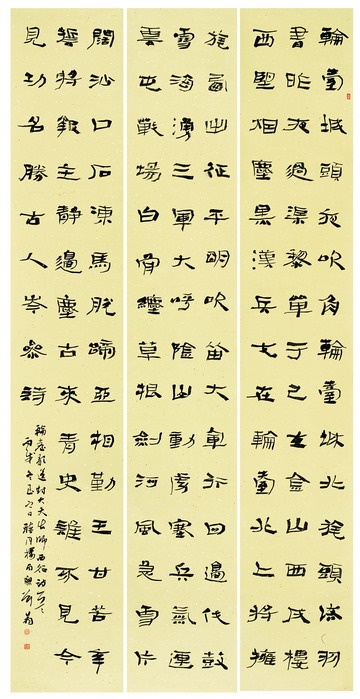 輪臺城頭夜吹角輪臺城北旄頭落羽
書昨夜過渠黎單于已在金山西戍樓
西望烟塵黑漢兵屯在輪臺北上將擁
旄西出征平明吹笛大軍行四邊伐鼓
雪海湧三軍大呼陰山動虜塞兵氣連
雲屯戰場白骨纏草根劍河風急雪片
闊沙口石凍馬脫蹄亞相勤王甘苦辛
誓將報主靜邊塵古來青史誰不見今
見功名勝古人岑參詩
輪臺歌送封大夫出師西征